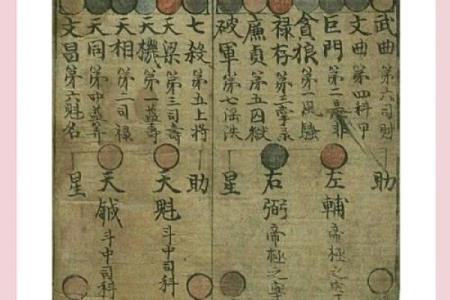 武曲第六司財
文曲第四科甲
巨門第二是非
貪狼第一風騷
祿存第三掌
廉貞第五囚獄
破軍第七淫
助
左輔帝極之
右弼帝極之
星
七殺第五上將
天梁第三司壽
天機第一益壽
天相第二司祿
天同第益算
文昌第六魁名
助
天魁斗中司科
天鉞斗中司科
星